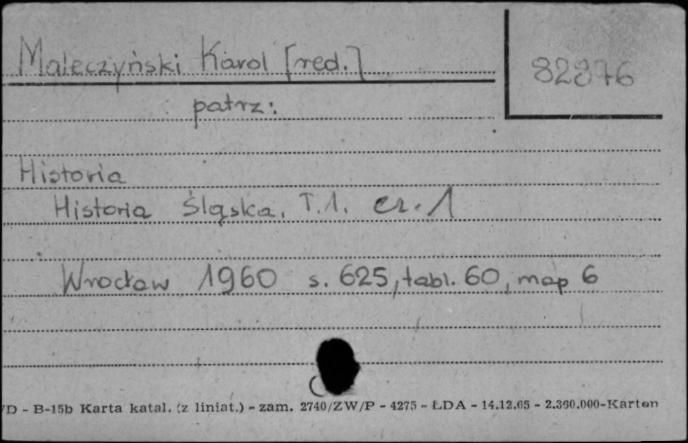 Maleczyński Karol [red.]
82376
patrz:
Historia
Historia Śląska, T.1, cz.1
Wrocław 1960 s. 625, tabl. 60, map 6
/D - B-15b Karta katal. (z liniat.) - zam. 2740/ZW/P - 4275 - ŁDA - 14.12.65 - 2.360.000-Karton